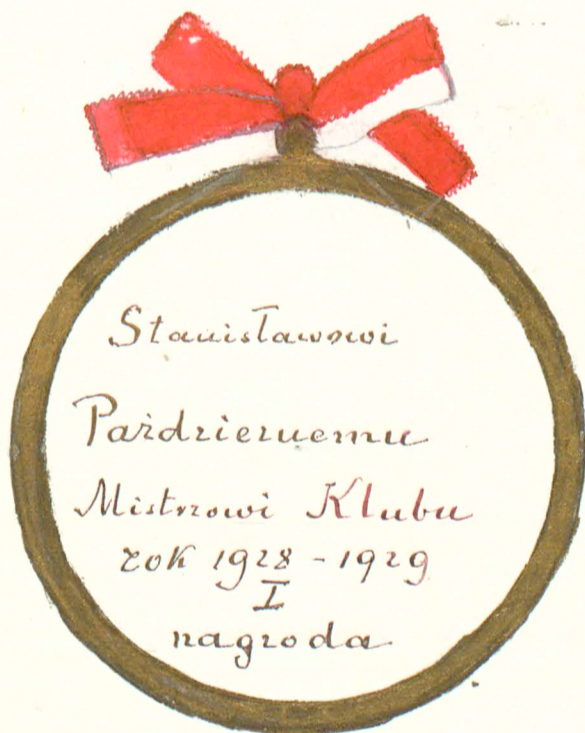 Stanisławowi
Pażdziernemu
Mistrzowi Klubu
rok 1928 - 1929
I
nagroda